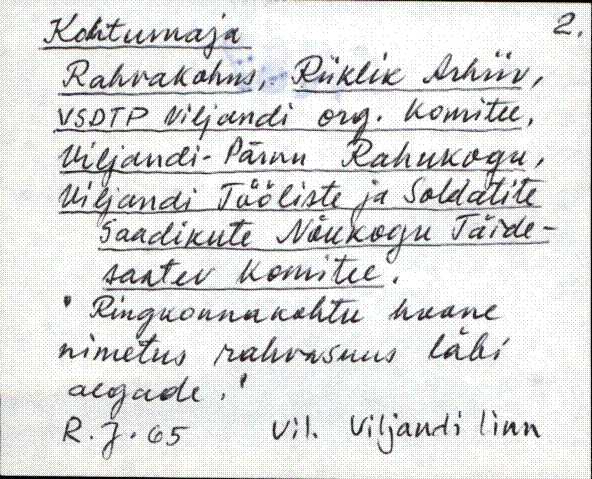 2.
Kohtumaja
Rahvakohus, Riiklik Arhiiv,
VSDTP Viljandi org. Komitee,
Viljandi-Pärnu Rahukogu,
Viljandi Tööliste ja Soldatite
Saadikute Nõukogu Täide-
saatev Komitee.
"Ringkonnakohtu hoone
nimetus rahvasuus läbi
aegade."
R. J. 65 Vil. Viljandi linn